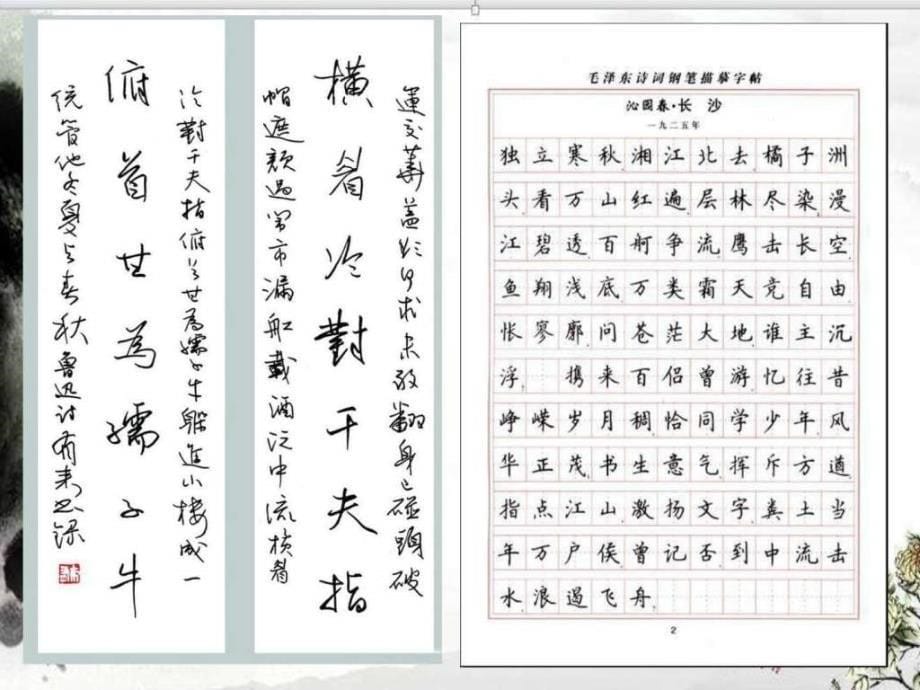 運交華蓋欲何求未敢翻身已碰頭破
橫眉冷對千夫指
帽遮顏過鬧市漏船載酒泛中流橫眉
冷對千夫指俯首甘為孺子牛躲進小樓成一
俯首甘為孺子牛
統管他冬夏与春秋 魯迅詩
毛泽东诗词钢笔描摹字帖
沁园春·长 沙
一九二五年
独立寒秋,湘江北去,橘子洲
头,看万山红遍,层林尽染,漫
江碧透,百舸争流,鹰击长空,
鱼翔浅底,万类霜天竞自由,
怅寥廓,问苍茫大地,谁主沉
浮, 携来百侣曾游,忆往昔
峥嵘岁月稠,恰同学少年,风
华正茂,书生意气,挥斥方遒,
指点江山,激扬文字,粪土当
年万户侯,曾记否,到中流击
水,浪遏飞舟,
2